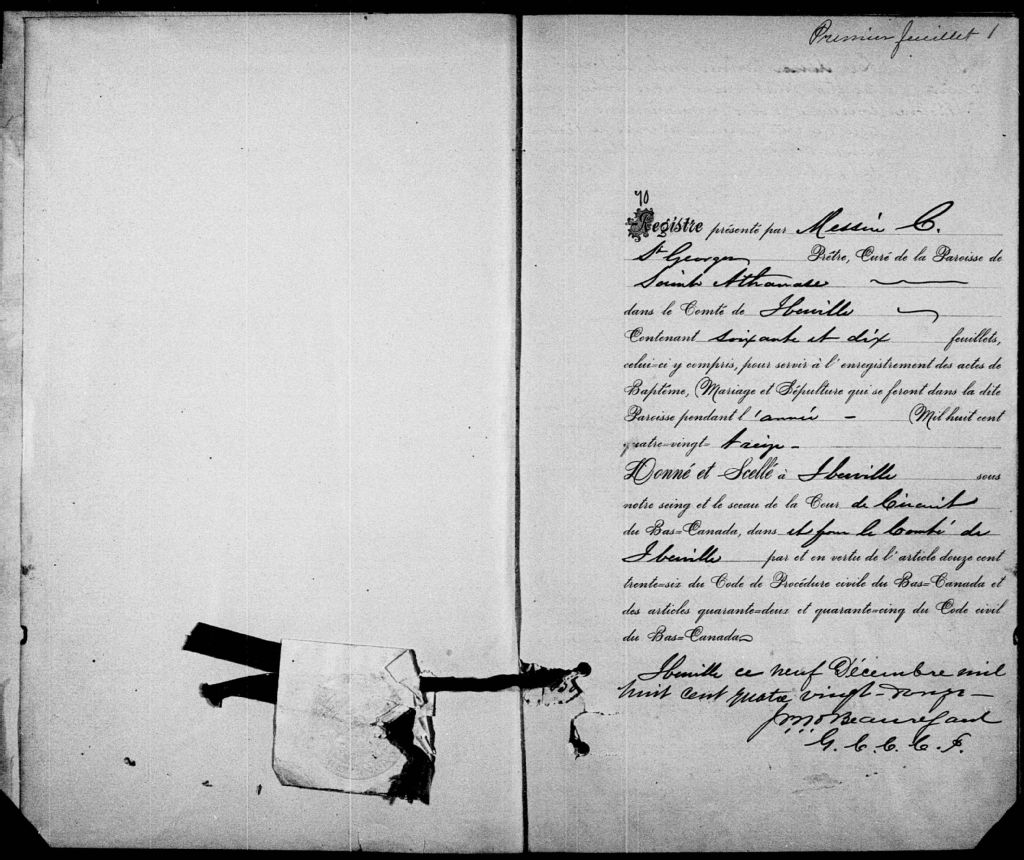 Premier feuillet 1
70
Registre présenté par Messire C.
St Georges Prêtre, Curé de la Paroisse de
Sainte Athanase
dans le Comté de Iberville
Contenant soixante et dix feuillets,
celui=ci y compris, pour servir à l'enregistrement des actes de
Baptême, Mariage et Sépulture qui se feront dans la dite
Paroisse pendant l'année - Mil huit cent
quatre=vingt= treize -
Donné et Scellé à Iberville sous
notre seing et le sceau de la Cour de Circuit
du Bas=Canada, dans et pour le Comté de
Iberville par et en vertu de l'article douze cent
trente=six du Code de Procédure civile du Bas=Canada et
des articles quarante=deux et quarante=cinq du Code civil
du Bas=Canada
Iberville ce neuf Décembre mil
huit cent quatre vingt-douze -
Beauregard
G. C. C. C. I.